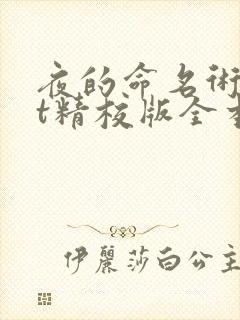 夜的命名術
t精校版全本
伊麗莎白公主